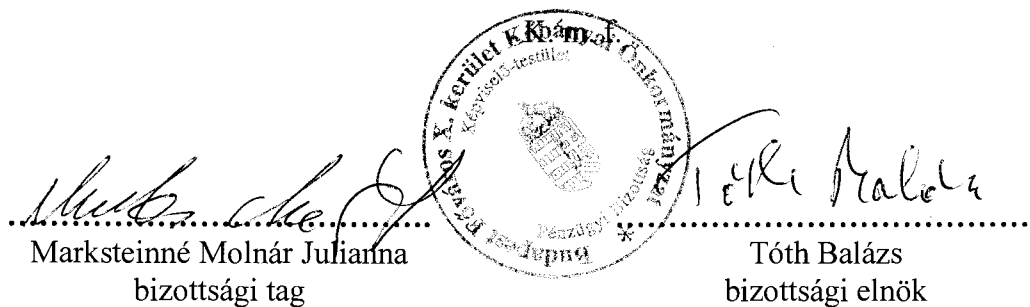 K. m. f.
Budapest Főváros X. kerület Kőbányai Önkormányzat
Képviselő-testület
Pénzügyi Bizottság
*
Tóth Balázs
Marksteinné Molnár Julianna
bizottsági tag
Tóth Balázs
bizottsági elnök